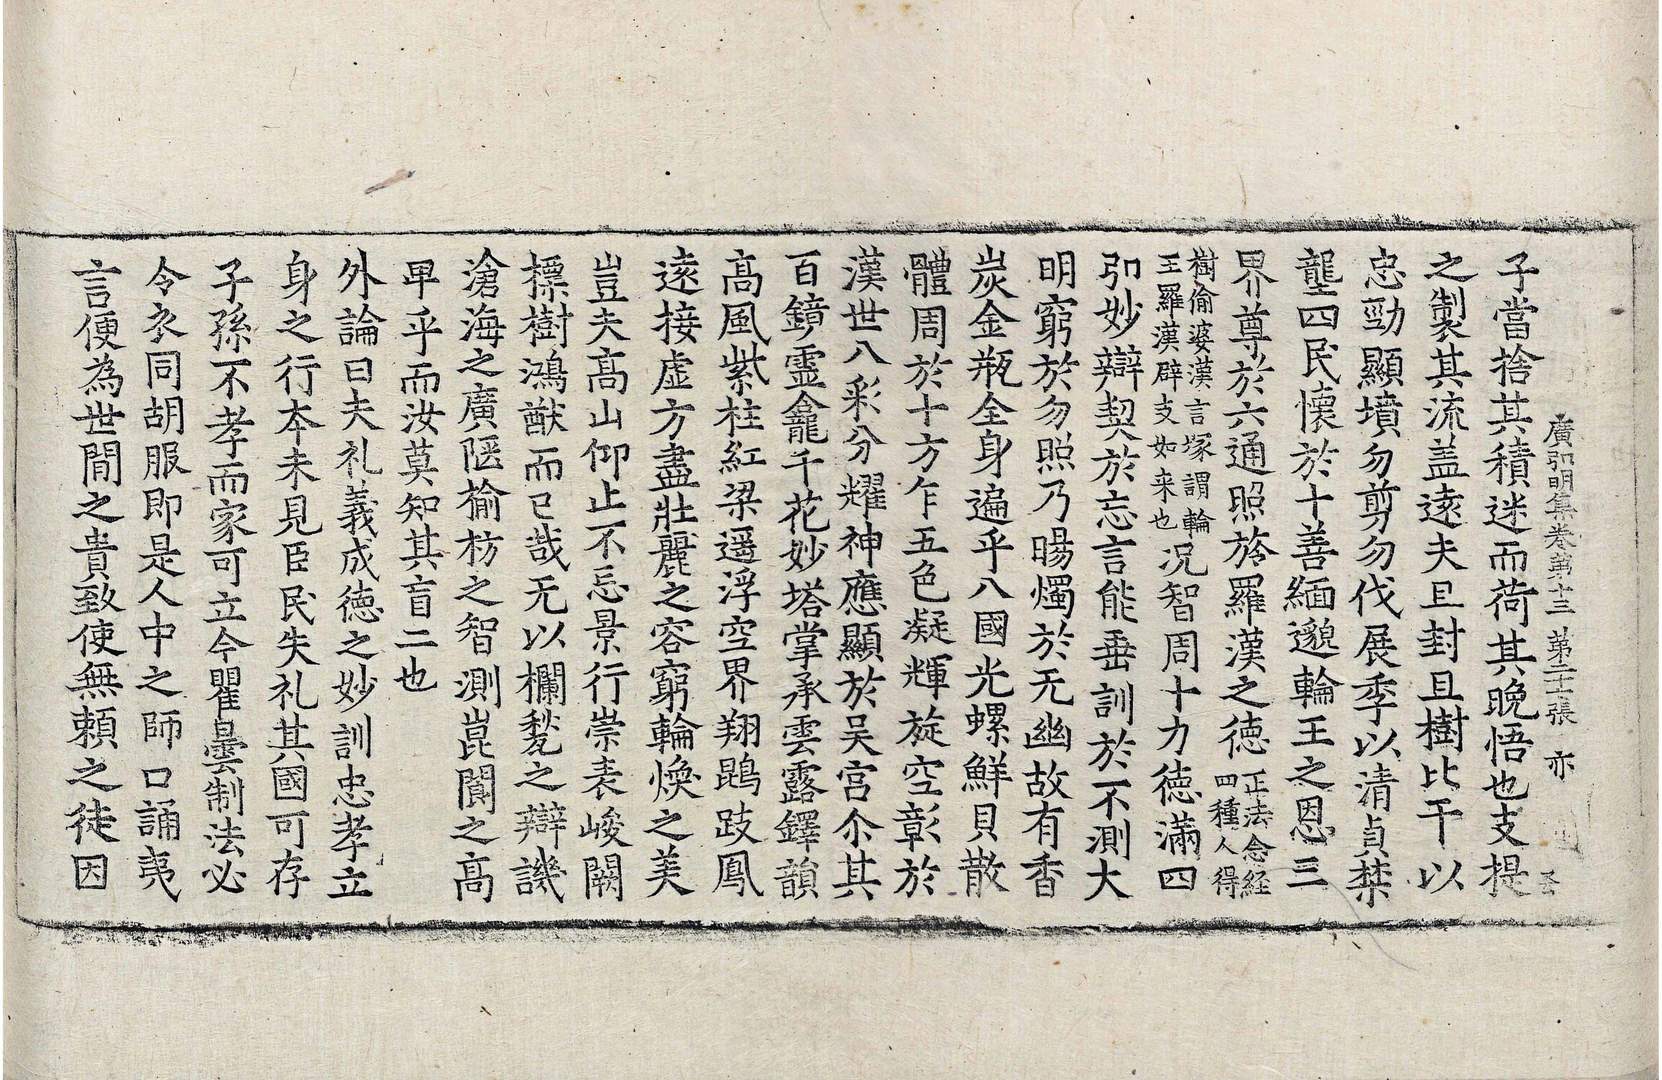 廣弘明集卷第十三 第二十二張 亦
子當捨其積迷而荷其晚悟也支提
之製其流盖遠夫且封且樹比干以
忠勁顯墳勿剪勿伐展季以清貞禁
壟四民懷於十善緬邈輪王之恩三
界尊於六通照於羅漢之德正法念經四種人得
樹偷婆漢言塚謂輪王羅漢辟支如来也况智周十力德滿四
弘妙辯契於忘言能垂訓於不測大
明窮於勿照乃暘燭於无幽故有香
炭金瓶全身遍乎八國光螺鮮貝散
體周於十方乍五色凝輝旋空彰於
漢世八彩分耀神應顯於吴宫尒其
百鏡靈龕千花妙塔掌承雲露鐸韻
高風紫柱紅梁遥浮空界翔鵾跂鳳
遠接虚方盡壯麗之容窮輪煥之美
豈夫高山仰止不忘景行崇表峻闕
摽樹鴻猷而已哉无以欄㲠之辯譏
滄海之廣隁榆枋之智測崑閬之高
甲乎而汝莫知其盲二也
外論曰夫礼義成德之妙訓忠孝立
身之行本未見臣民失礼其國可存
子孫不孝而家可立今瞿曇制法必
令衣同胡服即是人中之師口誦夷
言便為世間之貴致使無賴之徒因